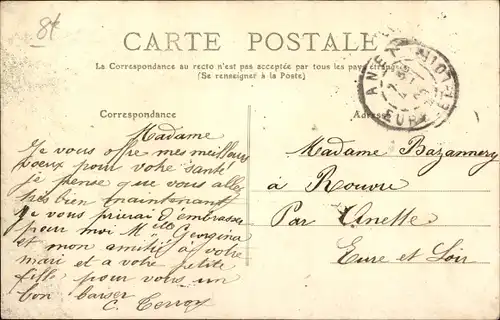 8f
CARTE POSTALE
La Correspondance au recto n'est pas acceptée par tous les pays étrangers
(Se renseigner à la Poste)
Correspondance
Adresse
Madame
Je vous offre mes meilleurs
voeux pour votre santé
je pense que vous allez
très bien maintenant
Je vous prierai d'embrasser
pour moi Mlle Georgina
et mon amitié à votre
mari et a votre petite
fille pour vous un
bon baiser
C.
Madame Bazannery
à Rouvre
Par Anette
Eure et Loir